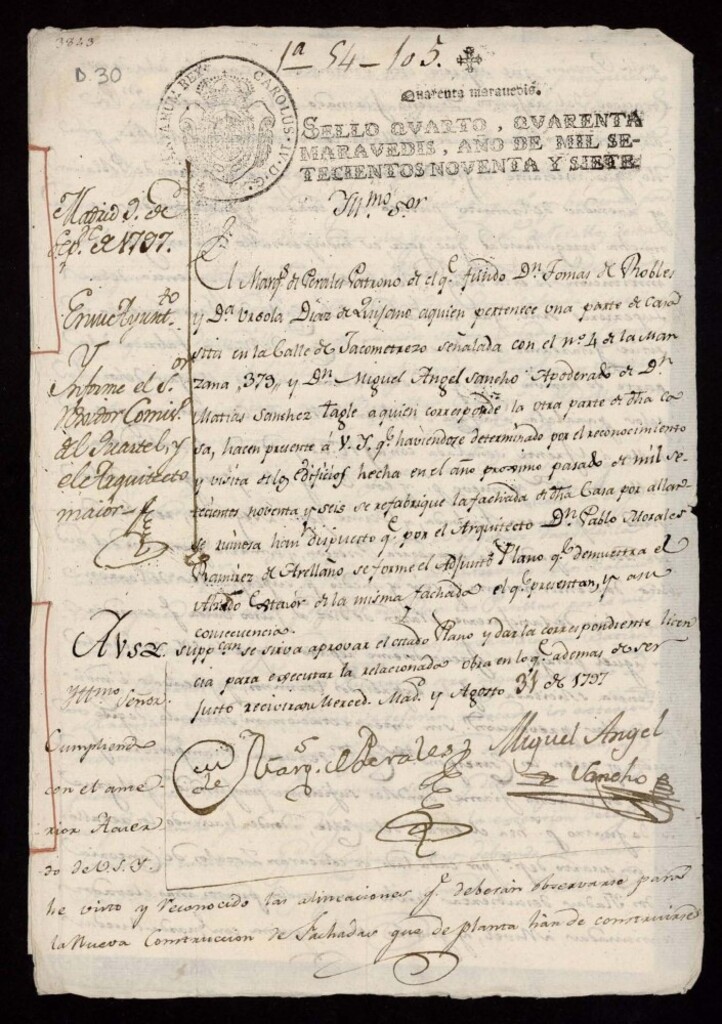 3843
D.30
1ª 54-105.
CAROLUS IV D. G. HISPANIARUM REX
Quarenta maravedis.
SELLO QVARTO, QVARENTA
MARAVEDIS, AÑO DE MIL SE-
TECIENTOS NOVENTA Y SIETE.
Yllmo Sor
Madrid 9. de
Sepre de 1797.
En su Ayuntto
Y
Informe el Sor
Rexidor Comiso
del Quartel, y
el Arquitecto
maior
El Marqs de Perales Patrono de el qe fundó Dn Tomas de Robles
y Da Ursola Diaz de Quijano aquien pertenece una parte de Casa
sita en la Calle de Jacometrezo señalada con el nº 4 de la Man-
zana, 373, y Dn Miguel Angel Sancho Apoderado de Dn
Matias Sanchez Tagle a quien corresponde la otra parte de dha ca
sa, hacen presente á V.S.Y. qe haviendose determinado por el reconocimiento
y visita de los edificios hecha en el año proximo pasado de mil se-
tecientos noventa y seis se refabrique la fachada de dha Casa por allar-
se ruinosa han dispuesto qe por el Arquitecto Dn Pablo Morales
Ramirez de Arellano se forme el Adjunto Plano qe demuestra el
Alzado Exterior de la misma fachada el qe presentan, y a su
consecuencia.
A V.S.Y. suppcan se sirva aprovar el citado Plano y dar la correspondiente licen
cia para executar la relacionada obra en lo qe ademas de ser
justo reciviran Merced. Madd y Agosto 31 de 1797
el Marqs de Perales
Miguel Angel
Sancho
Yttmo Señor.
Cumpliendo
con el ante-
rior Acuer
do de V.S.Y.
he visto y reconocido las alineaciones qe deberán observarse para
la Nueva Construccion de Fachadas que de planta hán de construirse